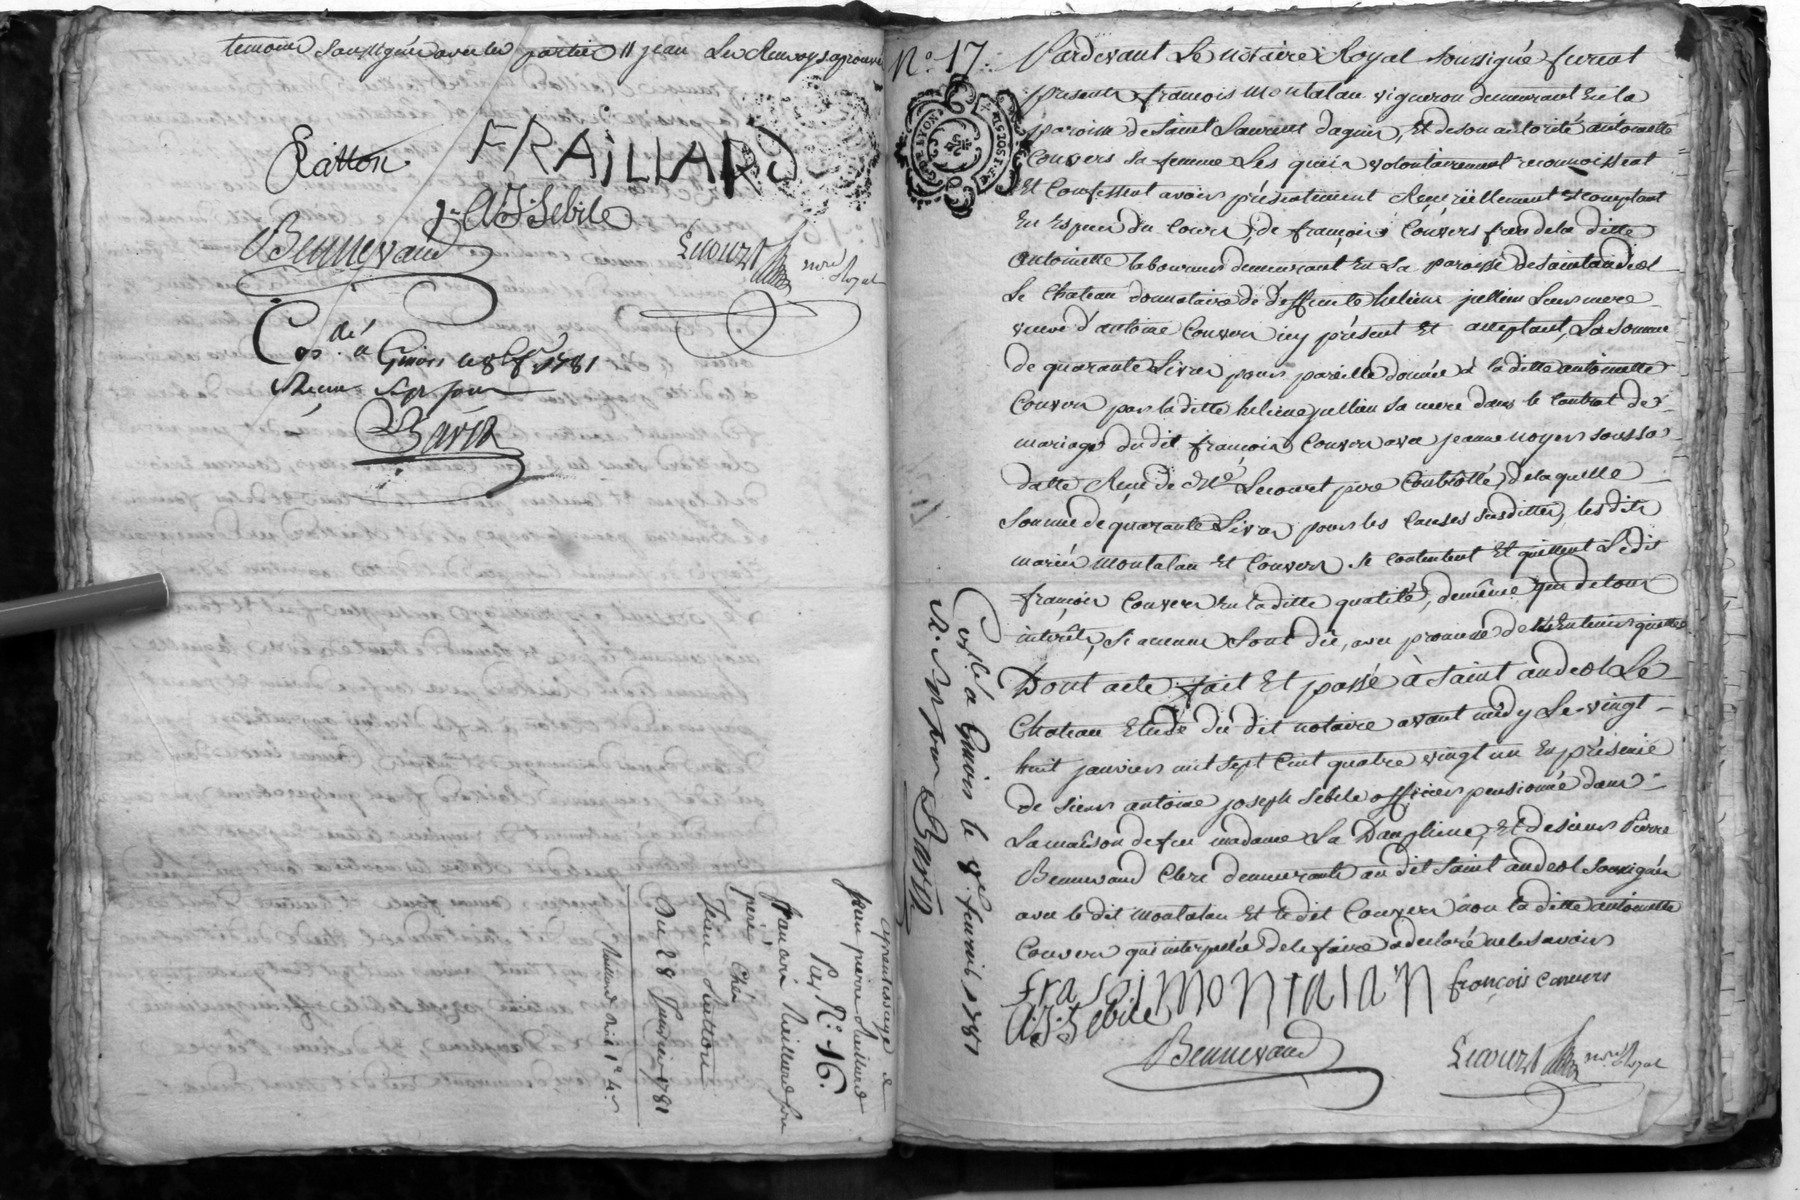 temoins Soussignés avec les parties 11 jean Les Renvoys aprouvé
Ratton
FRAILLARD
A J Sebile
Bennevaud
Lecourt nore Royal
Coslé
à Givors le 8e fr 1781
Reçu Sept sous
Barin
apprentissage de
jean pierre fraillard
Per No. 16.
françois fraillard son
père Chés
Jean Ratton
Du 28 Janvier 1781
No. 17.
Pardevant Le notaire Royal soussigné furent
presents françois montalan vigneron demeurant En la
paroisse de Saint Laurent dagnin, Et de son autorité antoinette
Couvers sa femme Les queis volontairement reconnoissent
Et Confessent avoir présentement Reçu réellement Et comptant
En Especes du Cours, de françois Couvers frere de la ditte
antoinette laboureur demeurant En La paroisse de Saint andeol
Le Chateau donnataire de deffunte helene jullien Leur mere
veuve d'antoine Couvers icy présent Et acceptant, La Somme
de quarante Livres pour pareille donnée à la ditte antoinette
Couvers par la ditte helene jullien sa mere dans le Contrat de
mariage du dit françois Couvers avec jeanne noyer sous sa
datte Reçu de Me Lecourt pere Controllé, de laquelle
Somme de quarante Livres pour les Causes susdittes, les dits
mariés montalan Et Couvers se contentent Et quittent Le dit
françois Couvers En la ditte qualité, de même que de tous
interêts, Si aucuns Sont dû, avec promesse de L'En tenir quitte
Dont acte fait Et passé à Saint andeol Le
Chateau Etude du dit notaire avant midy Le vingt
huit janvier mil sept Cent quatre vingt un En présence
de Sieur antoine joseph Sebile officier pensionné dans
La maison de feu madame La Dauphine, Et de sieur Pierre
Bennevaud Clerc demeurants au dit Saint andeol Soussignés
avec le dit montalan Et le dit Couvers non la ditte antoinette
Couvers qui interpellée de le faire a declaré ne le savoir
fransoi montalan
françois Couvers
A J Sebile
Bennevaud
Lecourt nore Royal
Coslé à Givors le 8e fevrier 1781
R. Sept sous Barin